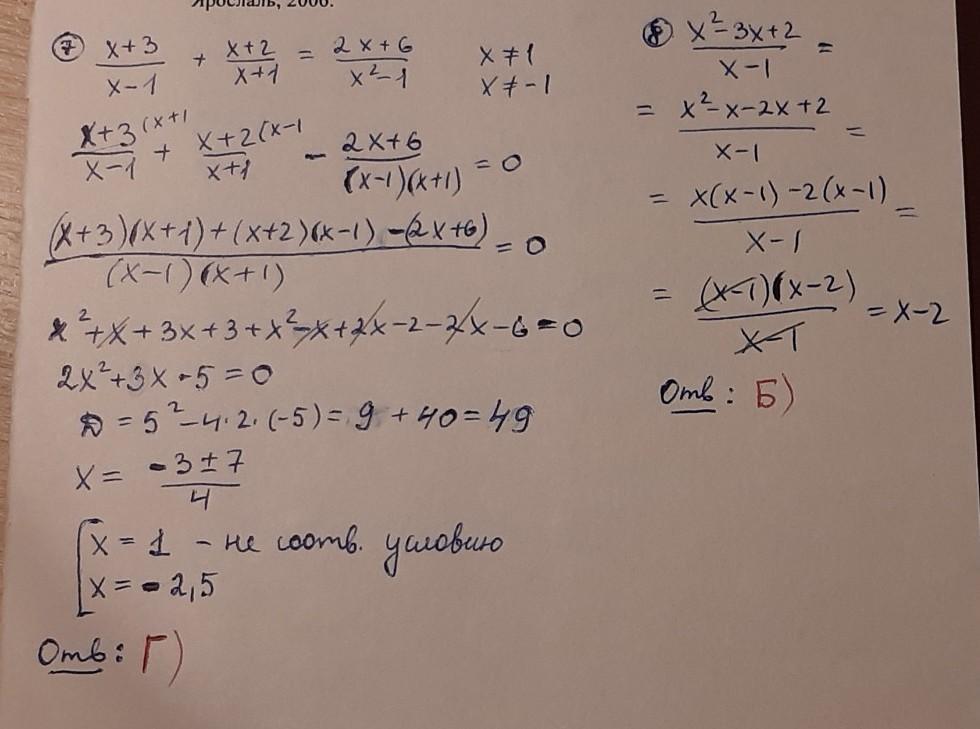 Ярославль, 2006.
⑦ x+3/x-1 + x+2/x+1 = 2x+6/x²-1 x≠1
x≠-1
x+3(x+1/x-1 + x+2(x-1/x+1 - 2x+6/(x-1)(x+1) = 0
(x+3)(x+1)+(x+2)(x-1)-(2x+6)/(x-1)(x+1) = 0
x²+x+3x+3+x²-x+2x-2-2x-6=0
2x²+3x-5=0
D = 5²-4·2·(-5)=9+40=49
x = -3±7/4
[x = 1 - не соотв. условию
x = -2,5
Отв: Г)
⑧ x²-3x+2/x-1 =
= x²-x-2x+2/x-1 =
= x(x-1)-2(x-1)/x-1 =
= (x-1)(x-2)/x-1 = x-2
Отв: Б)